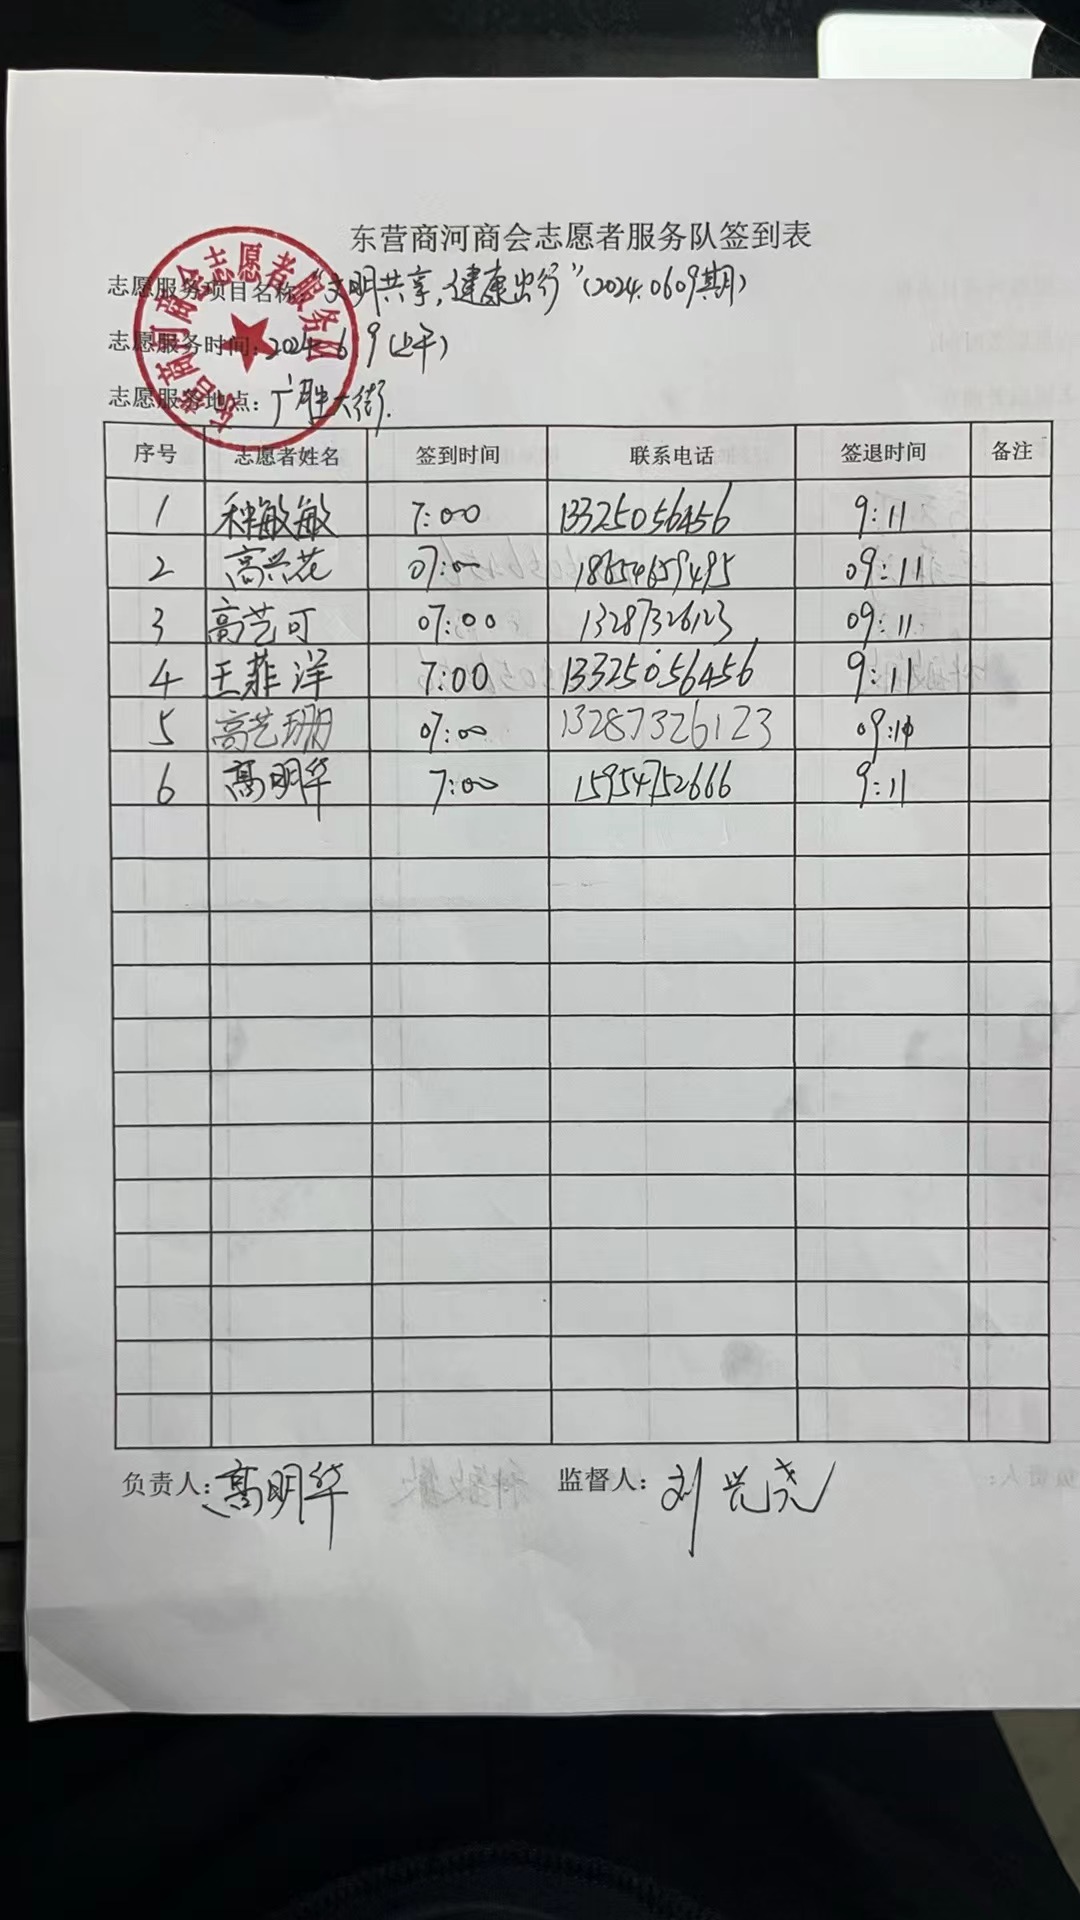 东营商河商会志愿者服务队签到表
志愿服务项目名称:“文明共享,健康出行”(2024.0609期)
志愿服务时间:2024.6.9(上午)
志愿服务地点:广胜大街.
东营商河商会志愿者服务队
序号 志愿者姓名 签到时间 联系电话 签退时间 备注
1 种敏敏 7:00 13325056456 9:11
2 高兴花 07:00 18654659495 09:11
3 高艺可 07:00 13287326123 09:11
4 王菲洋 7:00 13325056456 9:11
5 高艺珊 07:00 13287326123 09:10
6 高明华 7:00 15954752666 9:11
负责人:高明华 监督人:刘兴尧